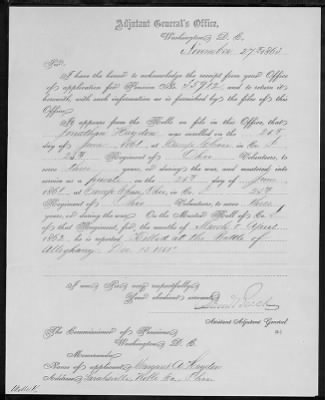 Adjutant General's Office,
Washington, D. C.
November 27th, 1863
Sir:
I have the honor to acknowledge the receipt from your Office
of application for Pension No. 35912 and to return it
herewith, with such information as is furnished by the files of this
Office.
It appears from the Rolls on file in this Office, that
Jonathan Hayden was enrolled on the 24th
day of June 1861 at Camp Chase, in Co.
25th Regiment of Ohio Volunteers, to
serve three years, or during the war, and mustered into
service as a private on the day of June
1861 at Camp Chase, Ohio, in Co. 25th
Regiment of Ohio Volunteers, to serve three
years, or during the war. On the Muster Roll of Co.
of that Regiment, for the months of March & April
1862 he is reported Killed at the Battle of
Alleghany Dec. 13 1861
I am, Sir, very respectfully,
Your obedient servant,
Assistant Adjutant General
The Commissioner of Pensions,
Washington, D. C.
Memoranda:
Name of applicant, Margaret A. Hayden
Address, Sarahsville, Noble Co., Ohio